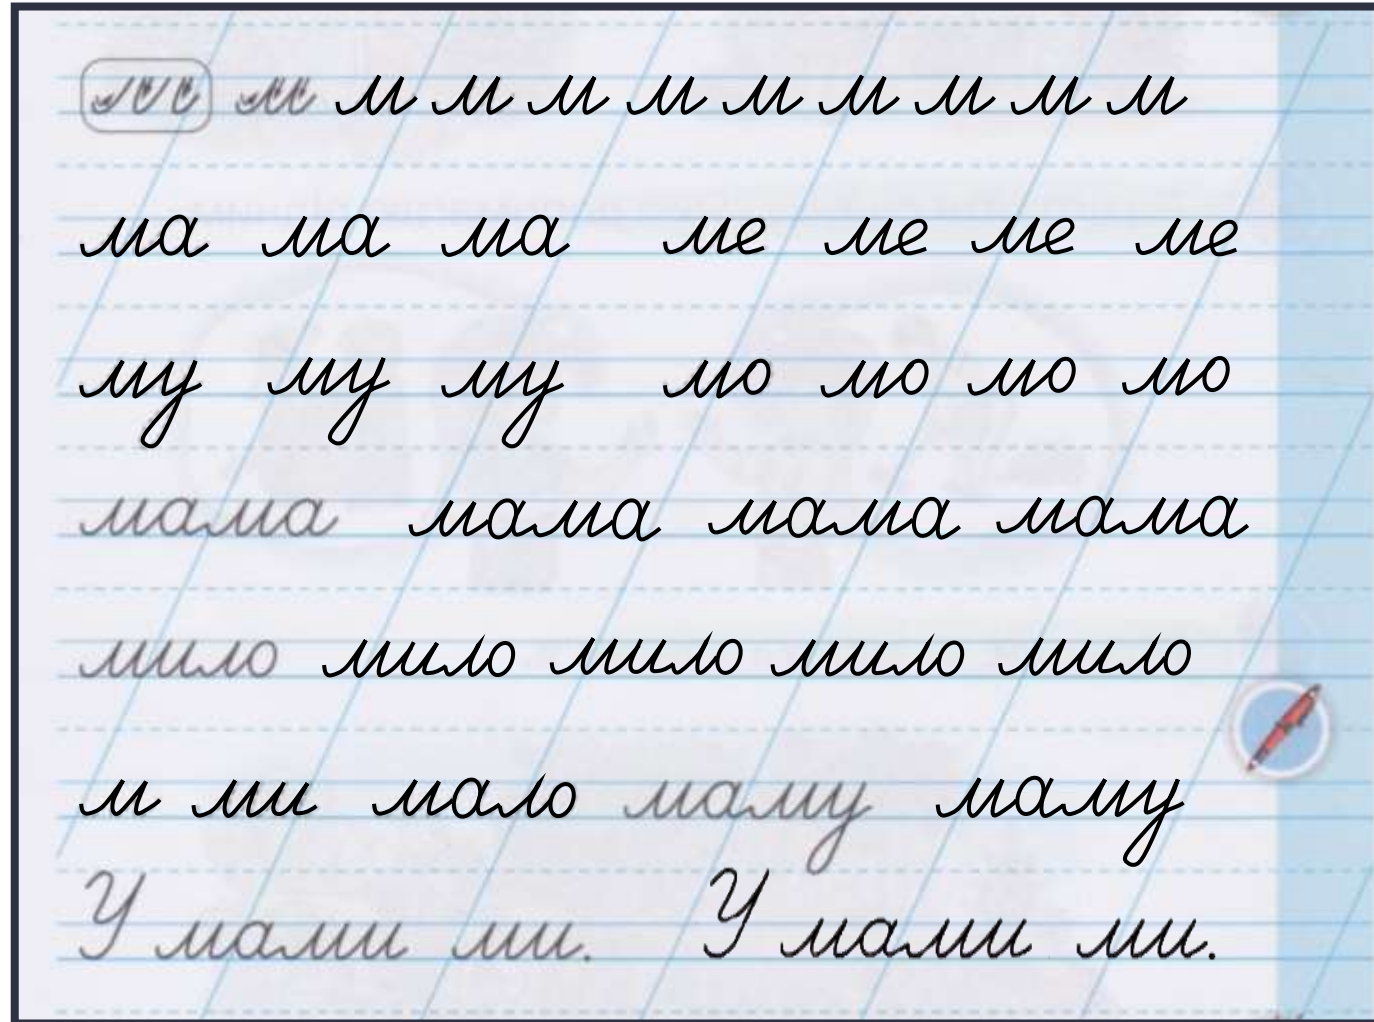 м м м м м м м м м м м
ма ма ма ме ме ме ме
му му му мо мо мо мо
мама мама мама мама
мило мило мило мило мило
м ми мало маму маму
У мами ми. У мами ми.